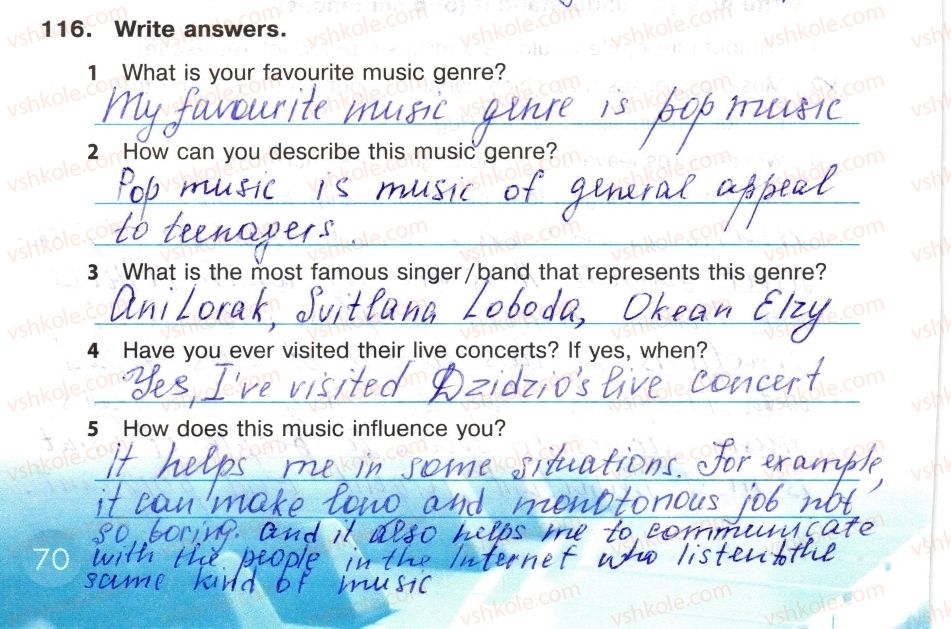 116. Write answers.
1 What is your favourite music genre?
My favourite music genre is pop music
2 How can you describe this music genre?
Pop music is music of general appeal
to teenagers.
3 What is the most famous singer/band that represents this genre?
Ani Lorak, Svitlana Loboda, Okean Elzy
4 Have you ever visited their live concerts? If yes, when?
Yes, I've visited Dzidzio's live concert
5 How does this music influence you?
It helps me in some situations. For example,
it can make long and monotonous job not
so boring. And it also helps me to communicate
70 with the people in the Internet who listen to the
same kind of music
vshkole.com